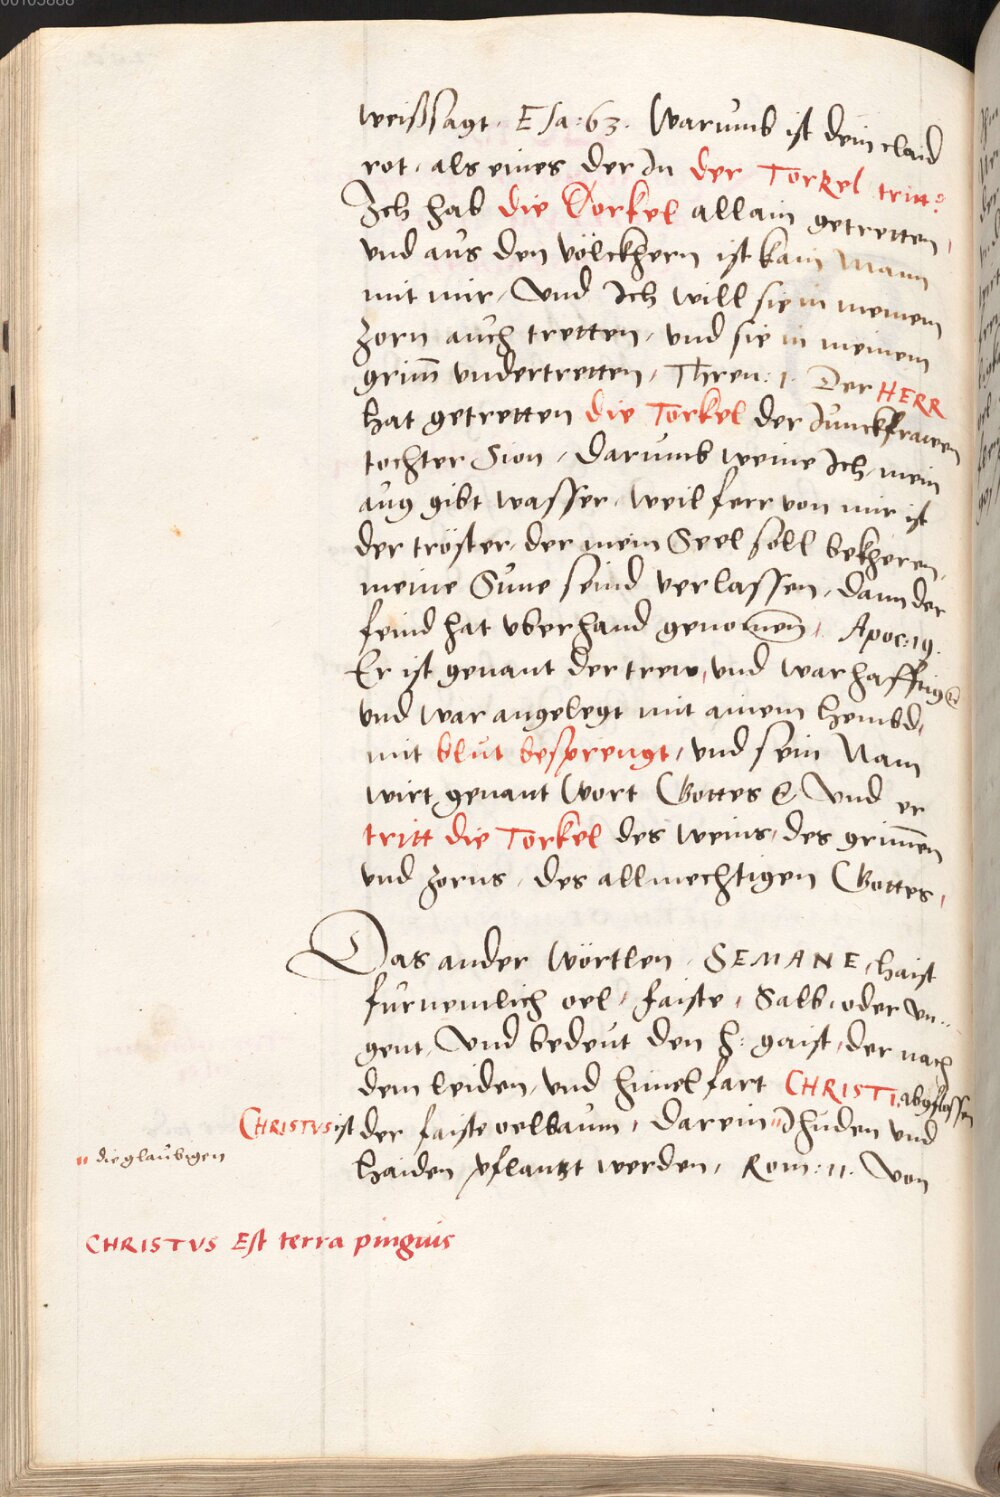 00103888
weißsagt. Esa: 63. Warumb ist dein claid
rot, als eines der In der Torkel tritt?
Ich hab die Dorkel allain getretten,
vnd aus den völckhern ist kain Mann
mit mir, Vnd Ich will sie in meinem
zorn auch tretten, vnd sie in meinem
grim̄ vndertretten, Thren: 1. Der HERR
hat getretten die Torkel der Junckfrawen
tochter Sion, darumb weine Ich, mein
aug gibt wasser, weil ferr von mir ist
der tröster, der mein Seel soll bekheren,
meine Süne seind verlassen, dann der
feind hat vberhand genomen, Apoc: 19.
Er ist genant der trew, vnd warhafftig
vnd war angelegt mit ainem hembd,
mit blut besprengt, vnd sein Nam
wirt genant Wort Gottes & Vnd er
tritt die Torkel des weins, des grim̄en
vnd zorns, des allmechtigen Gottes,
Das ander wörtlen, SEMANE, haist
furnemlich oel, faiste, Salb, oder vn-
gent, Vnd bedeut den h: gaist, der nach
dem leiden, vnd himelfart CHRISTI, abgflossen
CHRISTVS ist der faiste oelbaum, darein " Juden vnd
" die glaubigen
haiden pflantzt werden, Rom: 11. Von
CHRISTVS Est terra pinguis